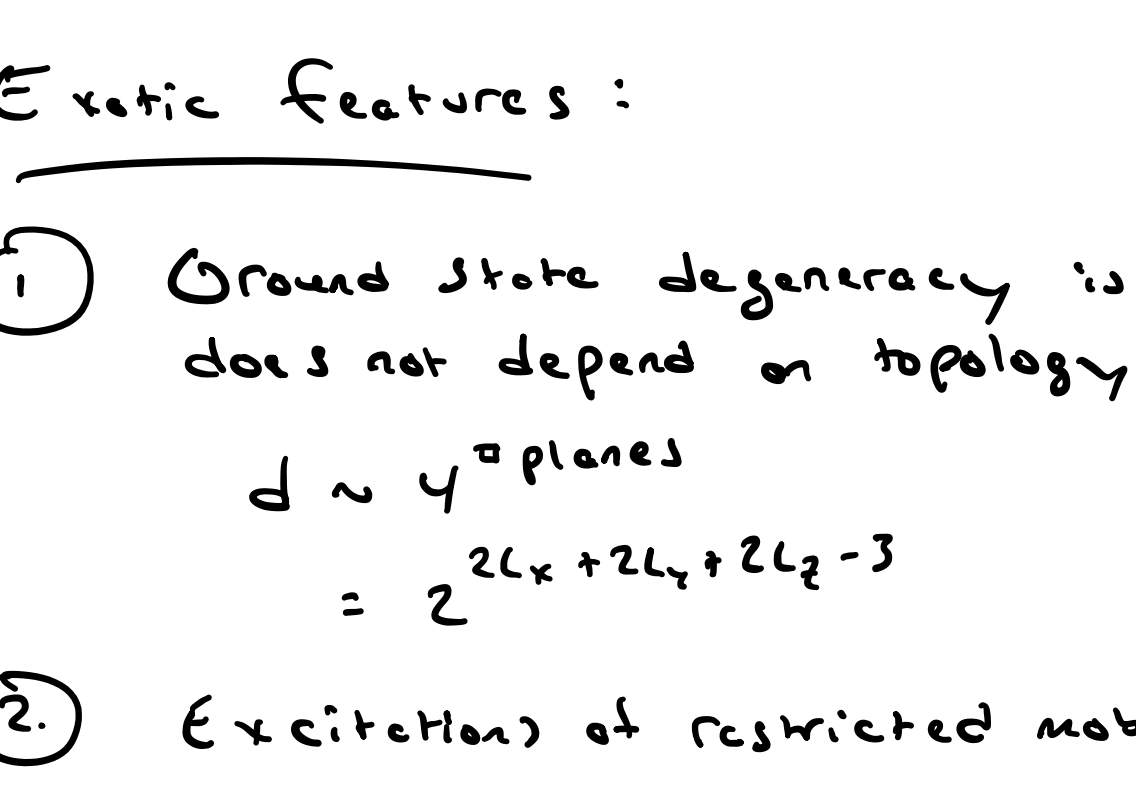 Exotic features:
1 Ground state degeneracy is
does not depend on topology
d ~ 4^{□ planes}
= 2^{2Lx + 2Ly + 2Lz - 3}
2. Excitations of restricted mob